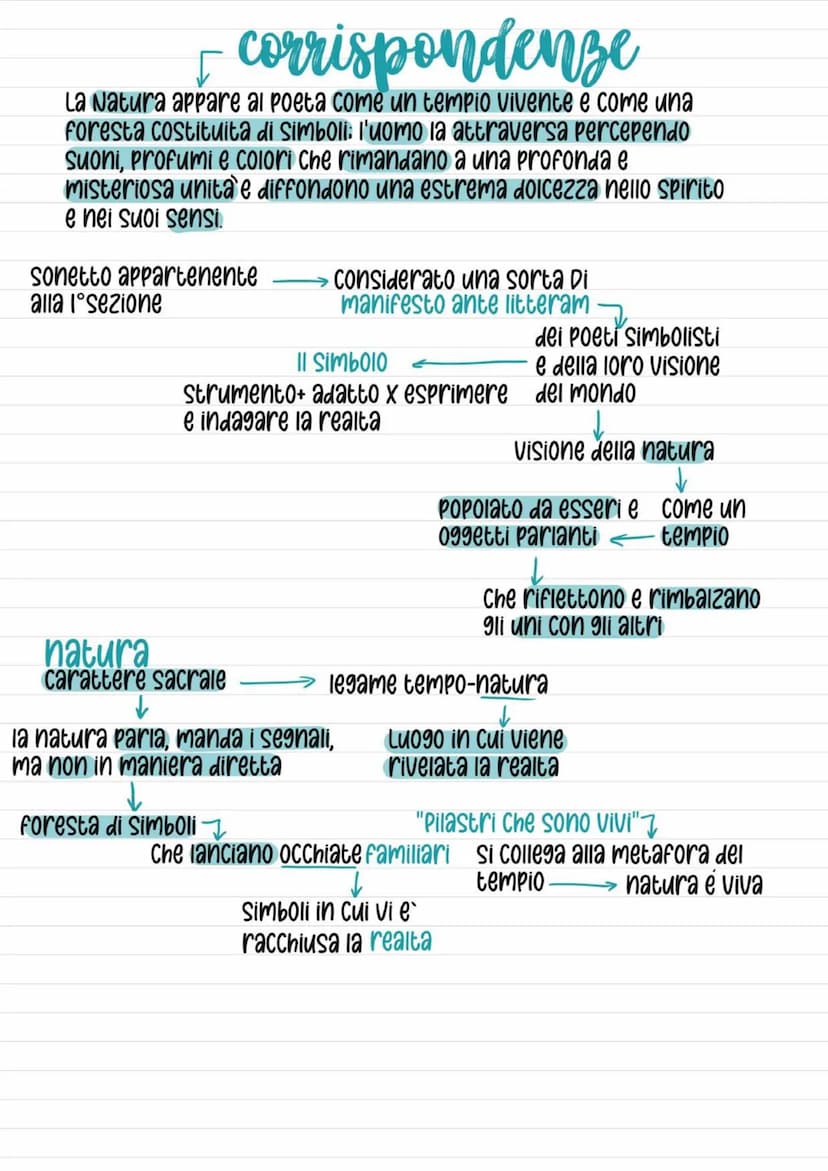 corrispondenze
La Natura appare al poeta come un tempio vivente e come una
foresta costituita di simboli: l'uomo la attraversa percependo
suoni, profumi e colori che rimandano a una profonda e
misteriosa unità e diffondono una estrema dolcezza nello spirito
e nei suoi sensi.
sonetto appartenente
alla 1°sezione
considerato una sorta Di
manifesto ante litteram
dei poeti simbolisti
e della loro visione
del mondo
Il simbolo
strumento+ adatto x esprimere
e indagare la realta
visione della natura
come un
tempio
popolato da esseri e
oggetti parlanti
che riflettono e rimbalzano
gli uni con gli altri
natura
carattere sacrale
legame tempo-natura
la natura parla, manda i segnali,
ma non in maniera diretta
Luogo in cui viene
rivelata la realta
foresta di simboli
che lanciano occhiate familiari
simboli in cui vi e`
racchiusa la realta
"Pilastri che sono vivi"
si collega alla metafora del
tempio
natura é viva